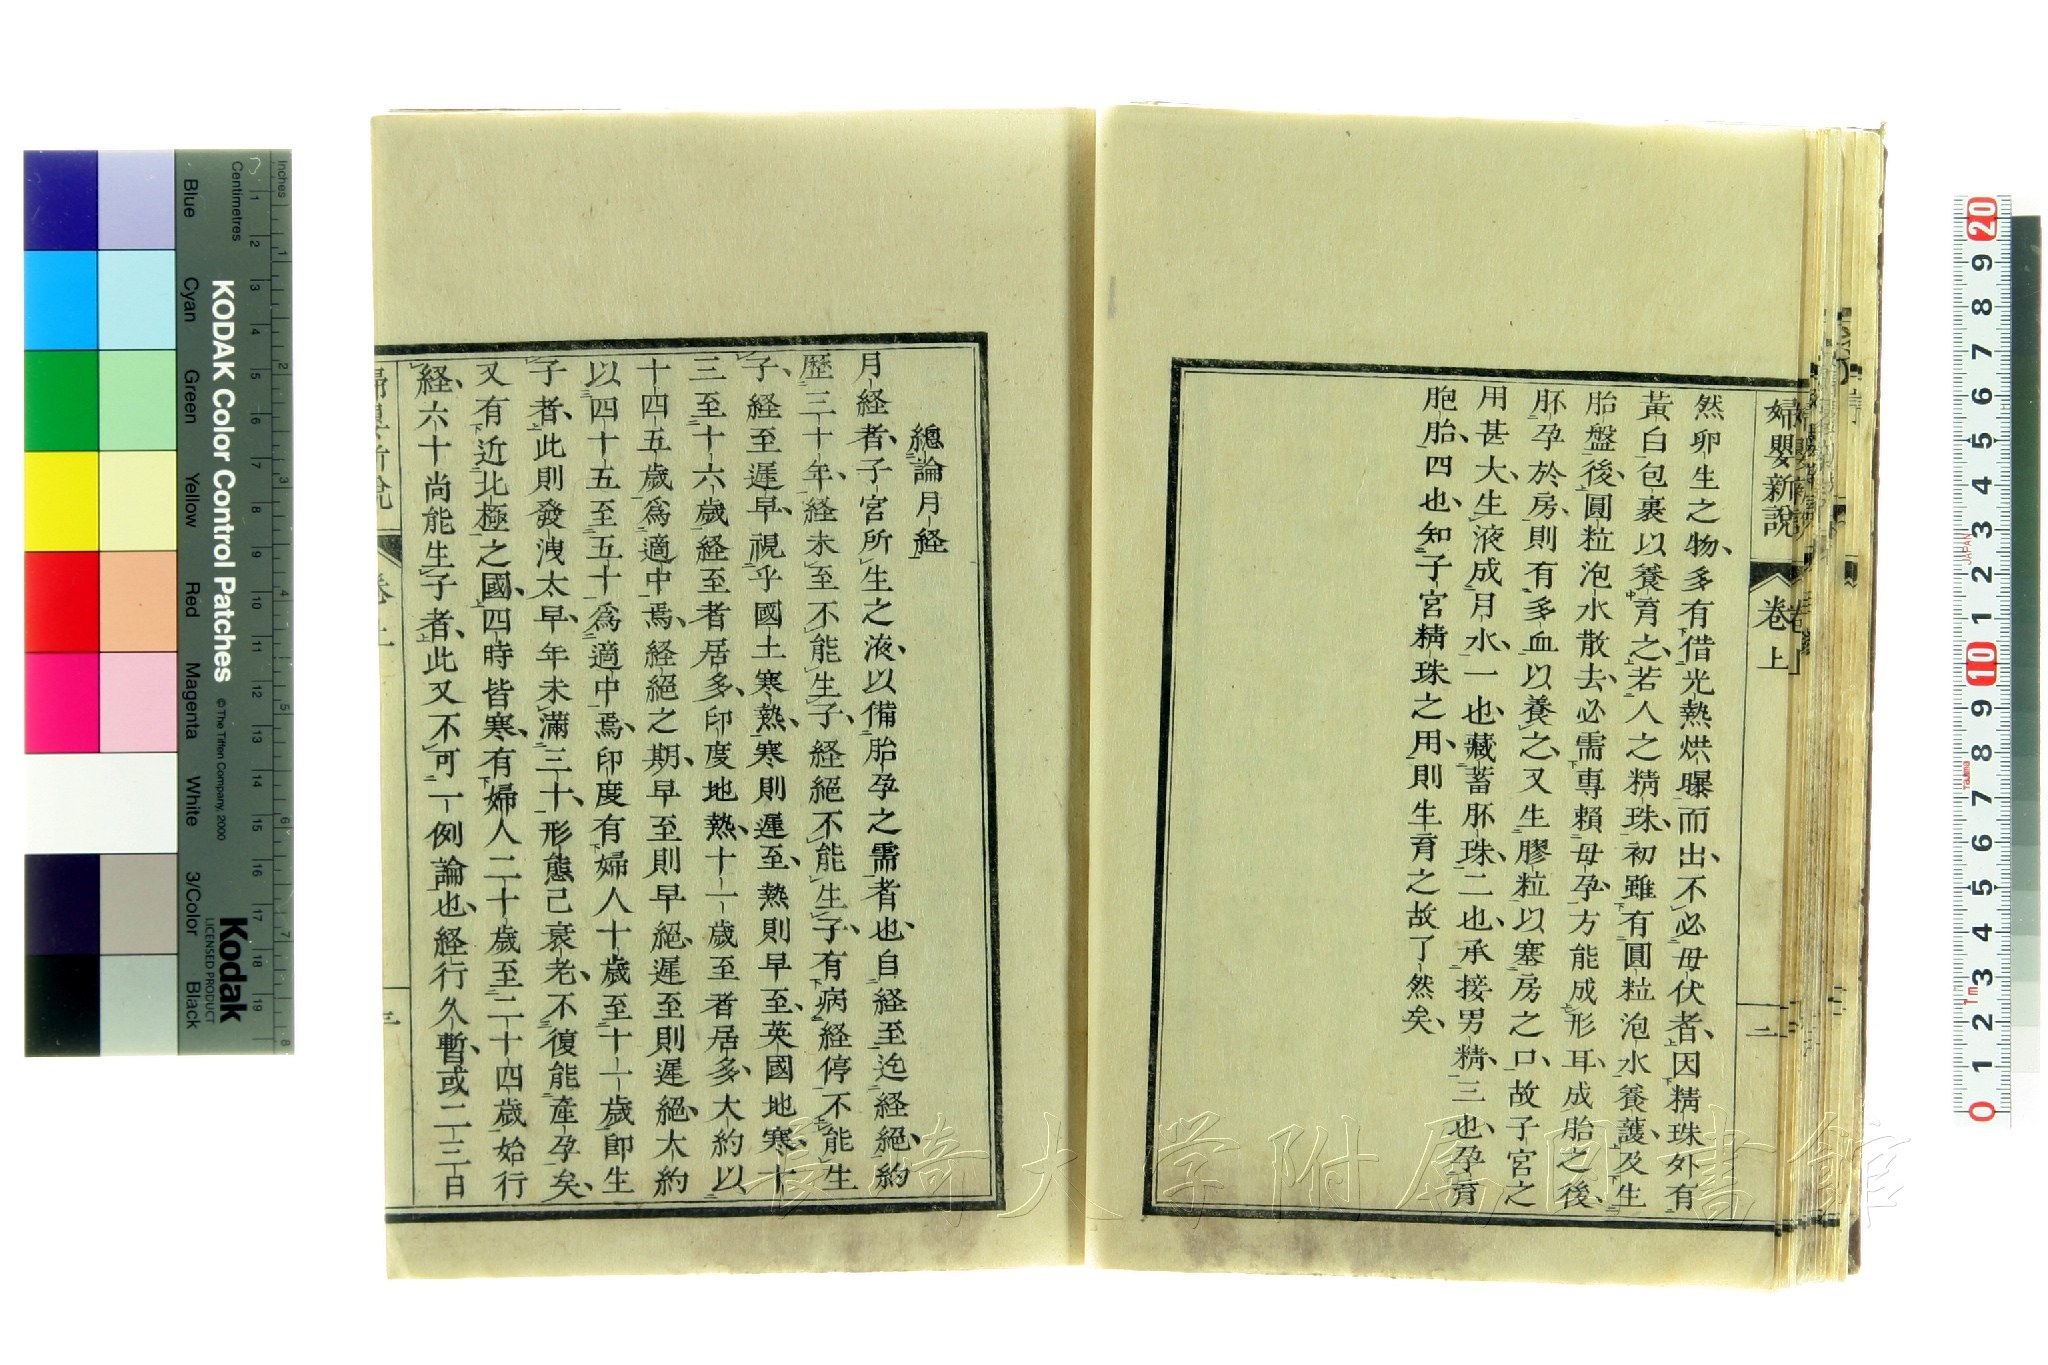 婦嬰新說 卷上 二
然卵生之物、多有借光熱烘曝而出、不必毋伏者、因精珠外有
黃白包裹以養育之、若人之精珠、初雖有圓粒泡水養護、及生
胎盤後、圓粒泡水散去、必需專賴毋孕、方能成形耳、成胎之後、
胚孕於房、則有多血以養之、又生膠粒以塞房之口、故子宮之
用甚大、生液成月水、一也、藏蓄胚珠、二也、承接男精、三也、孕育
胞胎、四也、知子宮精珠之用、則生育之故了然矣、
總論月経
月経者、子宮所生之液、以備胎孕之需者也、自経至迄経絕、約
歷三十年、経未至不能生子、経絕不能生子、有病経停不能生
子、経至遲早、視乎國土寒熱、寒則遲至、熱則早至、英國地寒、十
三至十六歲経至者居多、印度地熱、十一歲至者居多、大約以
十四五歲爲適中焉、経絕之期、早至則早絕、遲至則遲絕、大約
以四十五至五十爲適中焉、印度有婦人十歲至十一歲卽生
子者、此則發洩太早、年未滿三十、形態己衰老、不復能產孕矣、
又有近北極之國、四時皆寒、有婦人二十歲至二十四歲始行
経、六十尚能生子者、此又不可一例論也、経行久暫、或二三日
Inches
Centimetres
KODAK Color Control Patches
© The Tiffen Company, 2000
Kodak
LICENSED PRODUCT
Blue Cyan Green Yellow Red Magenta White 3/Color Black
長崎大学附属図書館